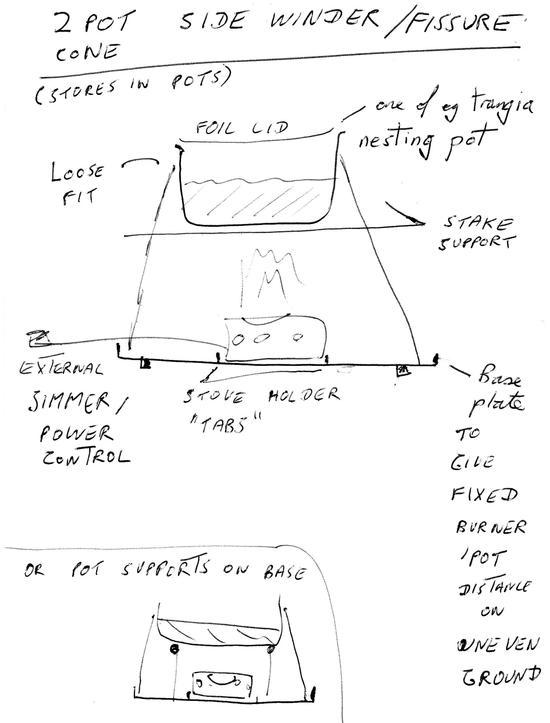 2 POT SIDE WINDER/FISSURE
CONE
(STORES IN POTS)
FOIL LID
one of eg trangia
nesting pot
LOOSE
FIT
STAKE
SUPPORT
EXTERNAL
SIMMER/
POWER
CONTROL
STOVE HOLDER
"TABS"
Base
plate
TO
GIVE
FIXED
BURNER
/POT
DISTANCE
ON
UNEVEN
GROUND
OR POT SUPPORTS ON BASE